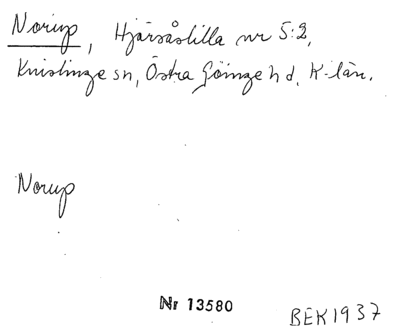 Norup, Hjärsåslilla nr 5:2,
Knislinge sn, Östra Göinge hd, K-län.
Norup
Nr 13580
BEK1937